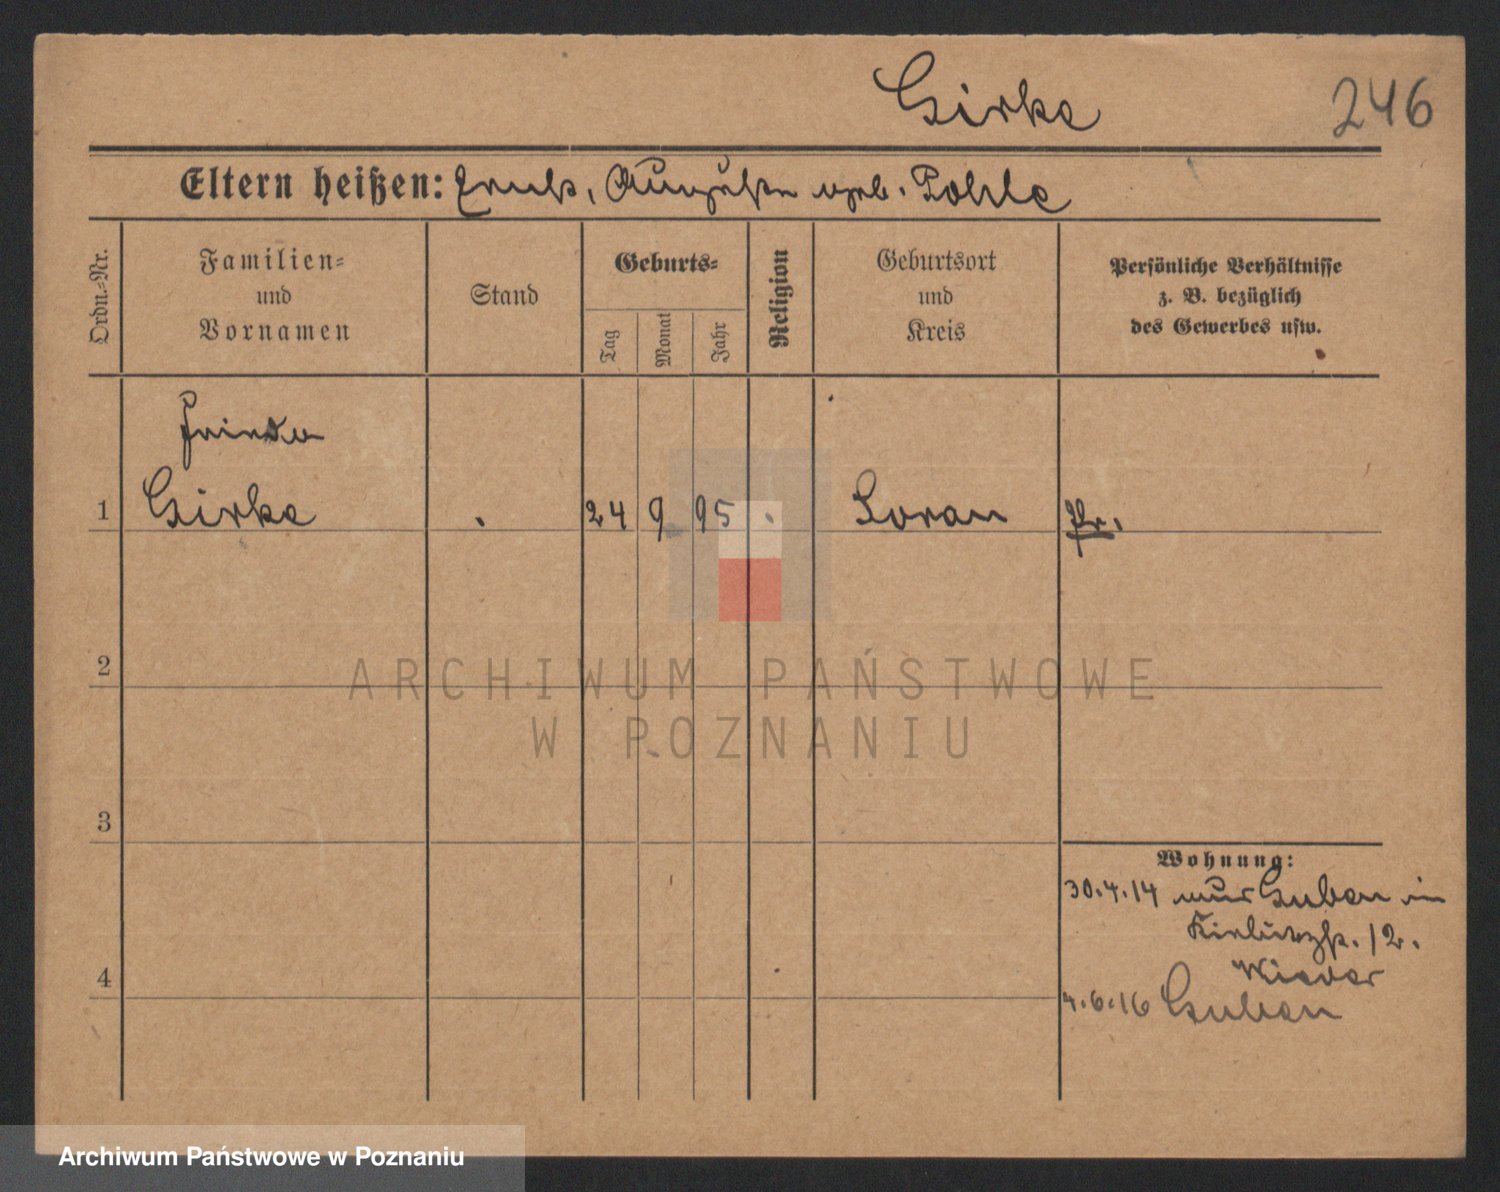 Girke
246
Eltern heißen: Ernst, Auguste geb. Pohle
Ordn.-Nr.
Familien-
und
Vornamen
Stand
Geburts-
Tag
Monat
Jahr
Religion
Geburtsort
und
Kreis
Persönliche Verhältnisse
z. B. bezüglich
des Gewerbes usw.
Frieda
1 Girke . 24 9 95 . Soran Pr.
2
ARCHIWUM PAŃSTWOWE
W POZNANIU
3
Wohnung:
30.4.14 Guben in
12.
4
Wieder
4.6.16 Guben
Archiwum Państwowe w Poznaniu